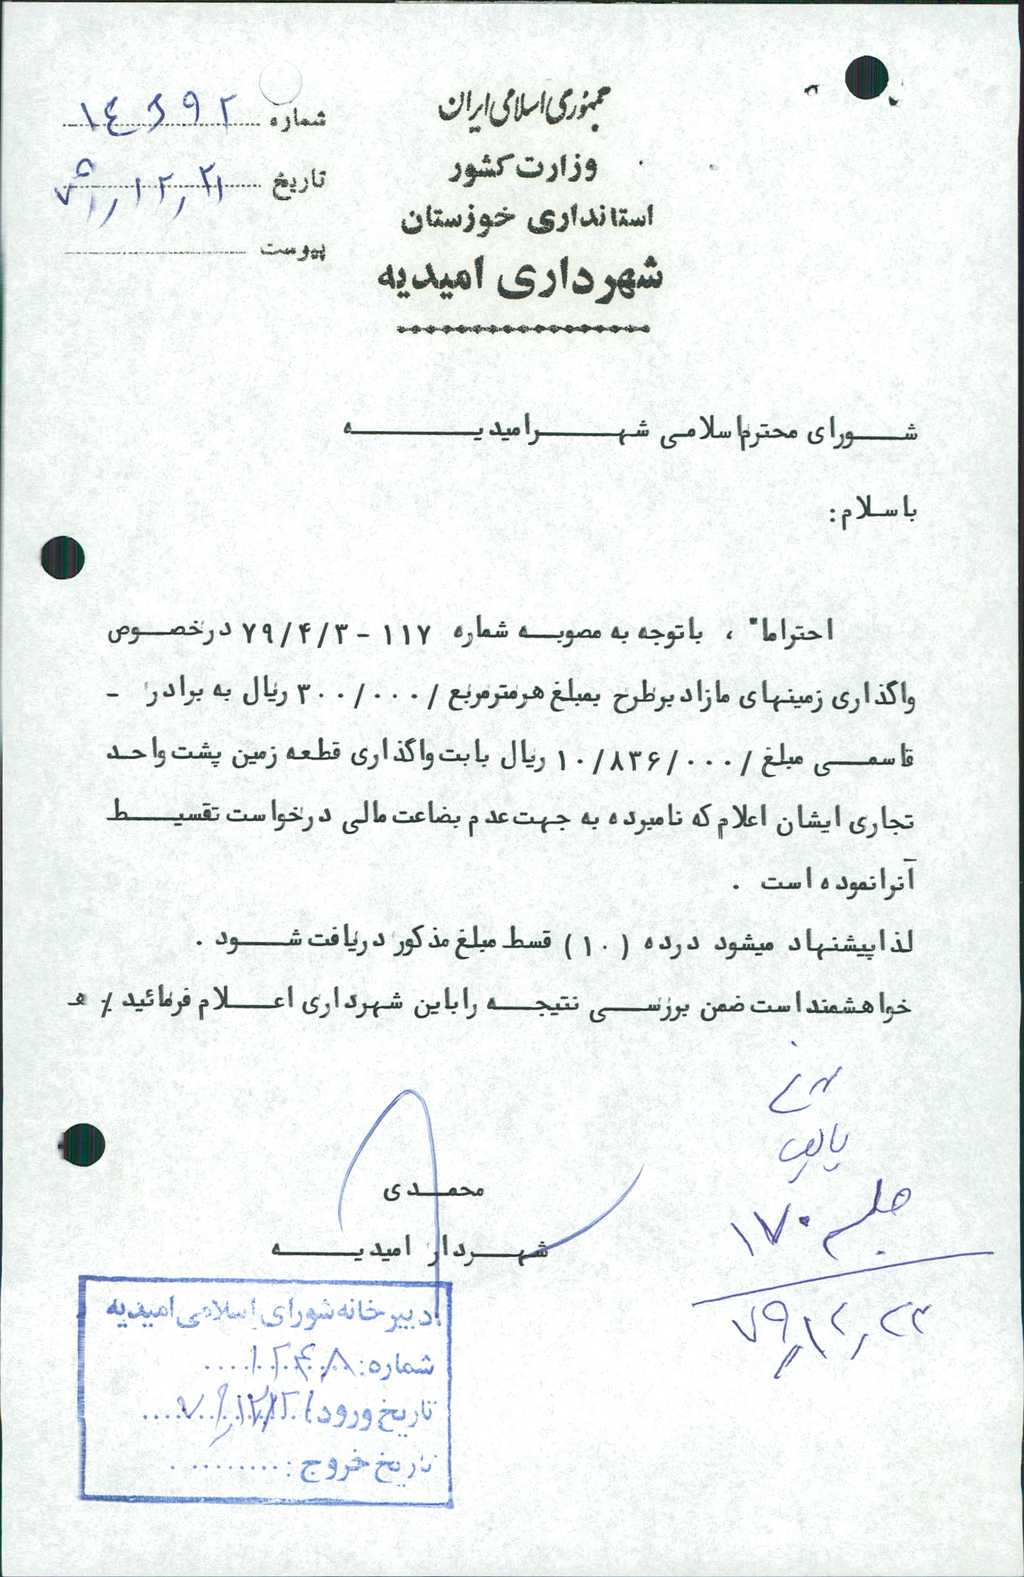 جمهوری اسلامی ایران
وزارت کشور
استانداری خوزستان
شهرداری امیدیه
شماره
تاریخ ۷۹/۱۲/۲۱
پیوست
شورای محترم اسلامی شهر امیدیه
با سلام :
احتراما" ، با توجه به مصوبه شماره ۱۱۷ - ۷۹/۴/۳ درخصوص
واگذاری زمینهای مازاد برطرح بمبلغ هرمترمربع /۳۰۰/۰۰۰ ریال به برادر -
قاسمی مبلغ /۱۰/۸۳۶/۰۰۰ ریال بابت واگذاری قطعه زمین پشت واحد
تجاری ایشان اعلام که نامبرده به جهت عدم بضاعت مالی درخواست تقسیط
آنرا نموده است .
لذا پیشنهاد میشود در ده (۱۰) قسط مبلغ مذکور دریافت شود .
خواهشمند است ضمن بررسی نتیجه را باین شهرداری اعلام فرمائید /. ه
محمدی
شهردار امیدیه
جلسه ۱۷۰
۷۹/۱۲/۲۳
دبیرخانه شورای اسلامی امیدیه
شماره: ۱۲۴۰۸
تاریخ ورود
تاریخ خروج :